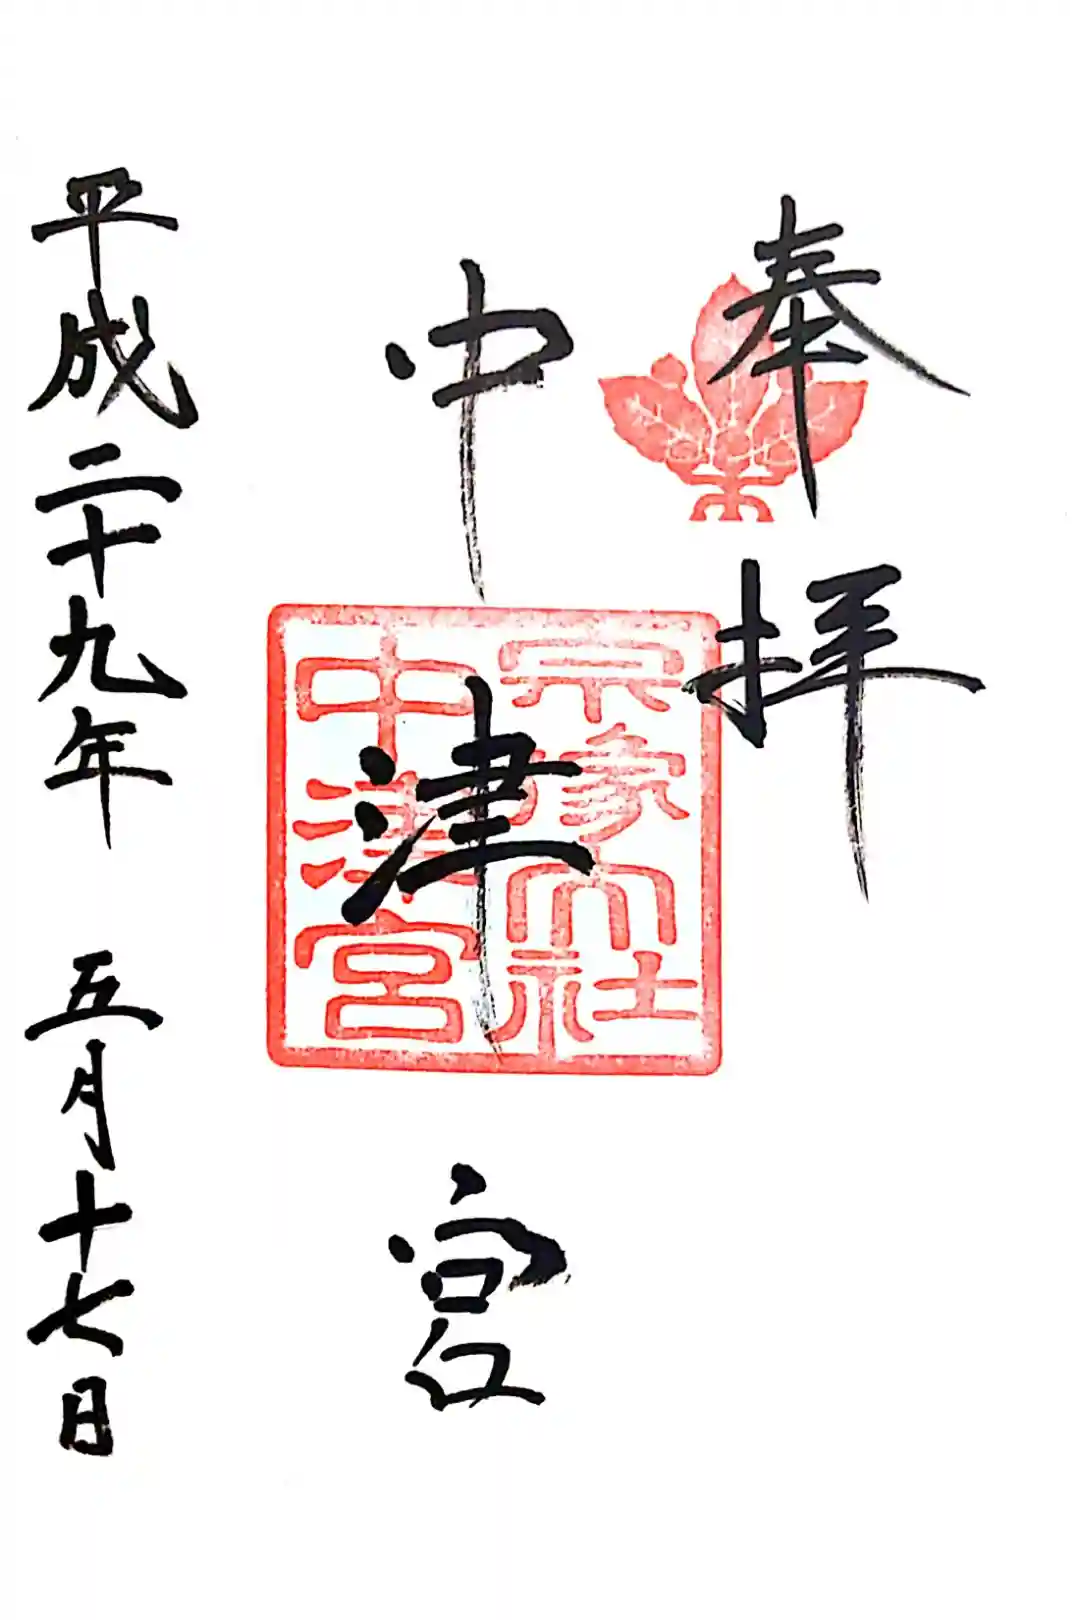 奉拝
中津宮
宗像大社
中津宮
平成二十九年 五月十七日